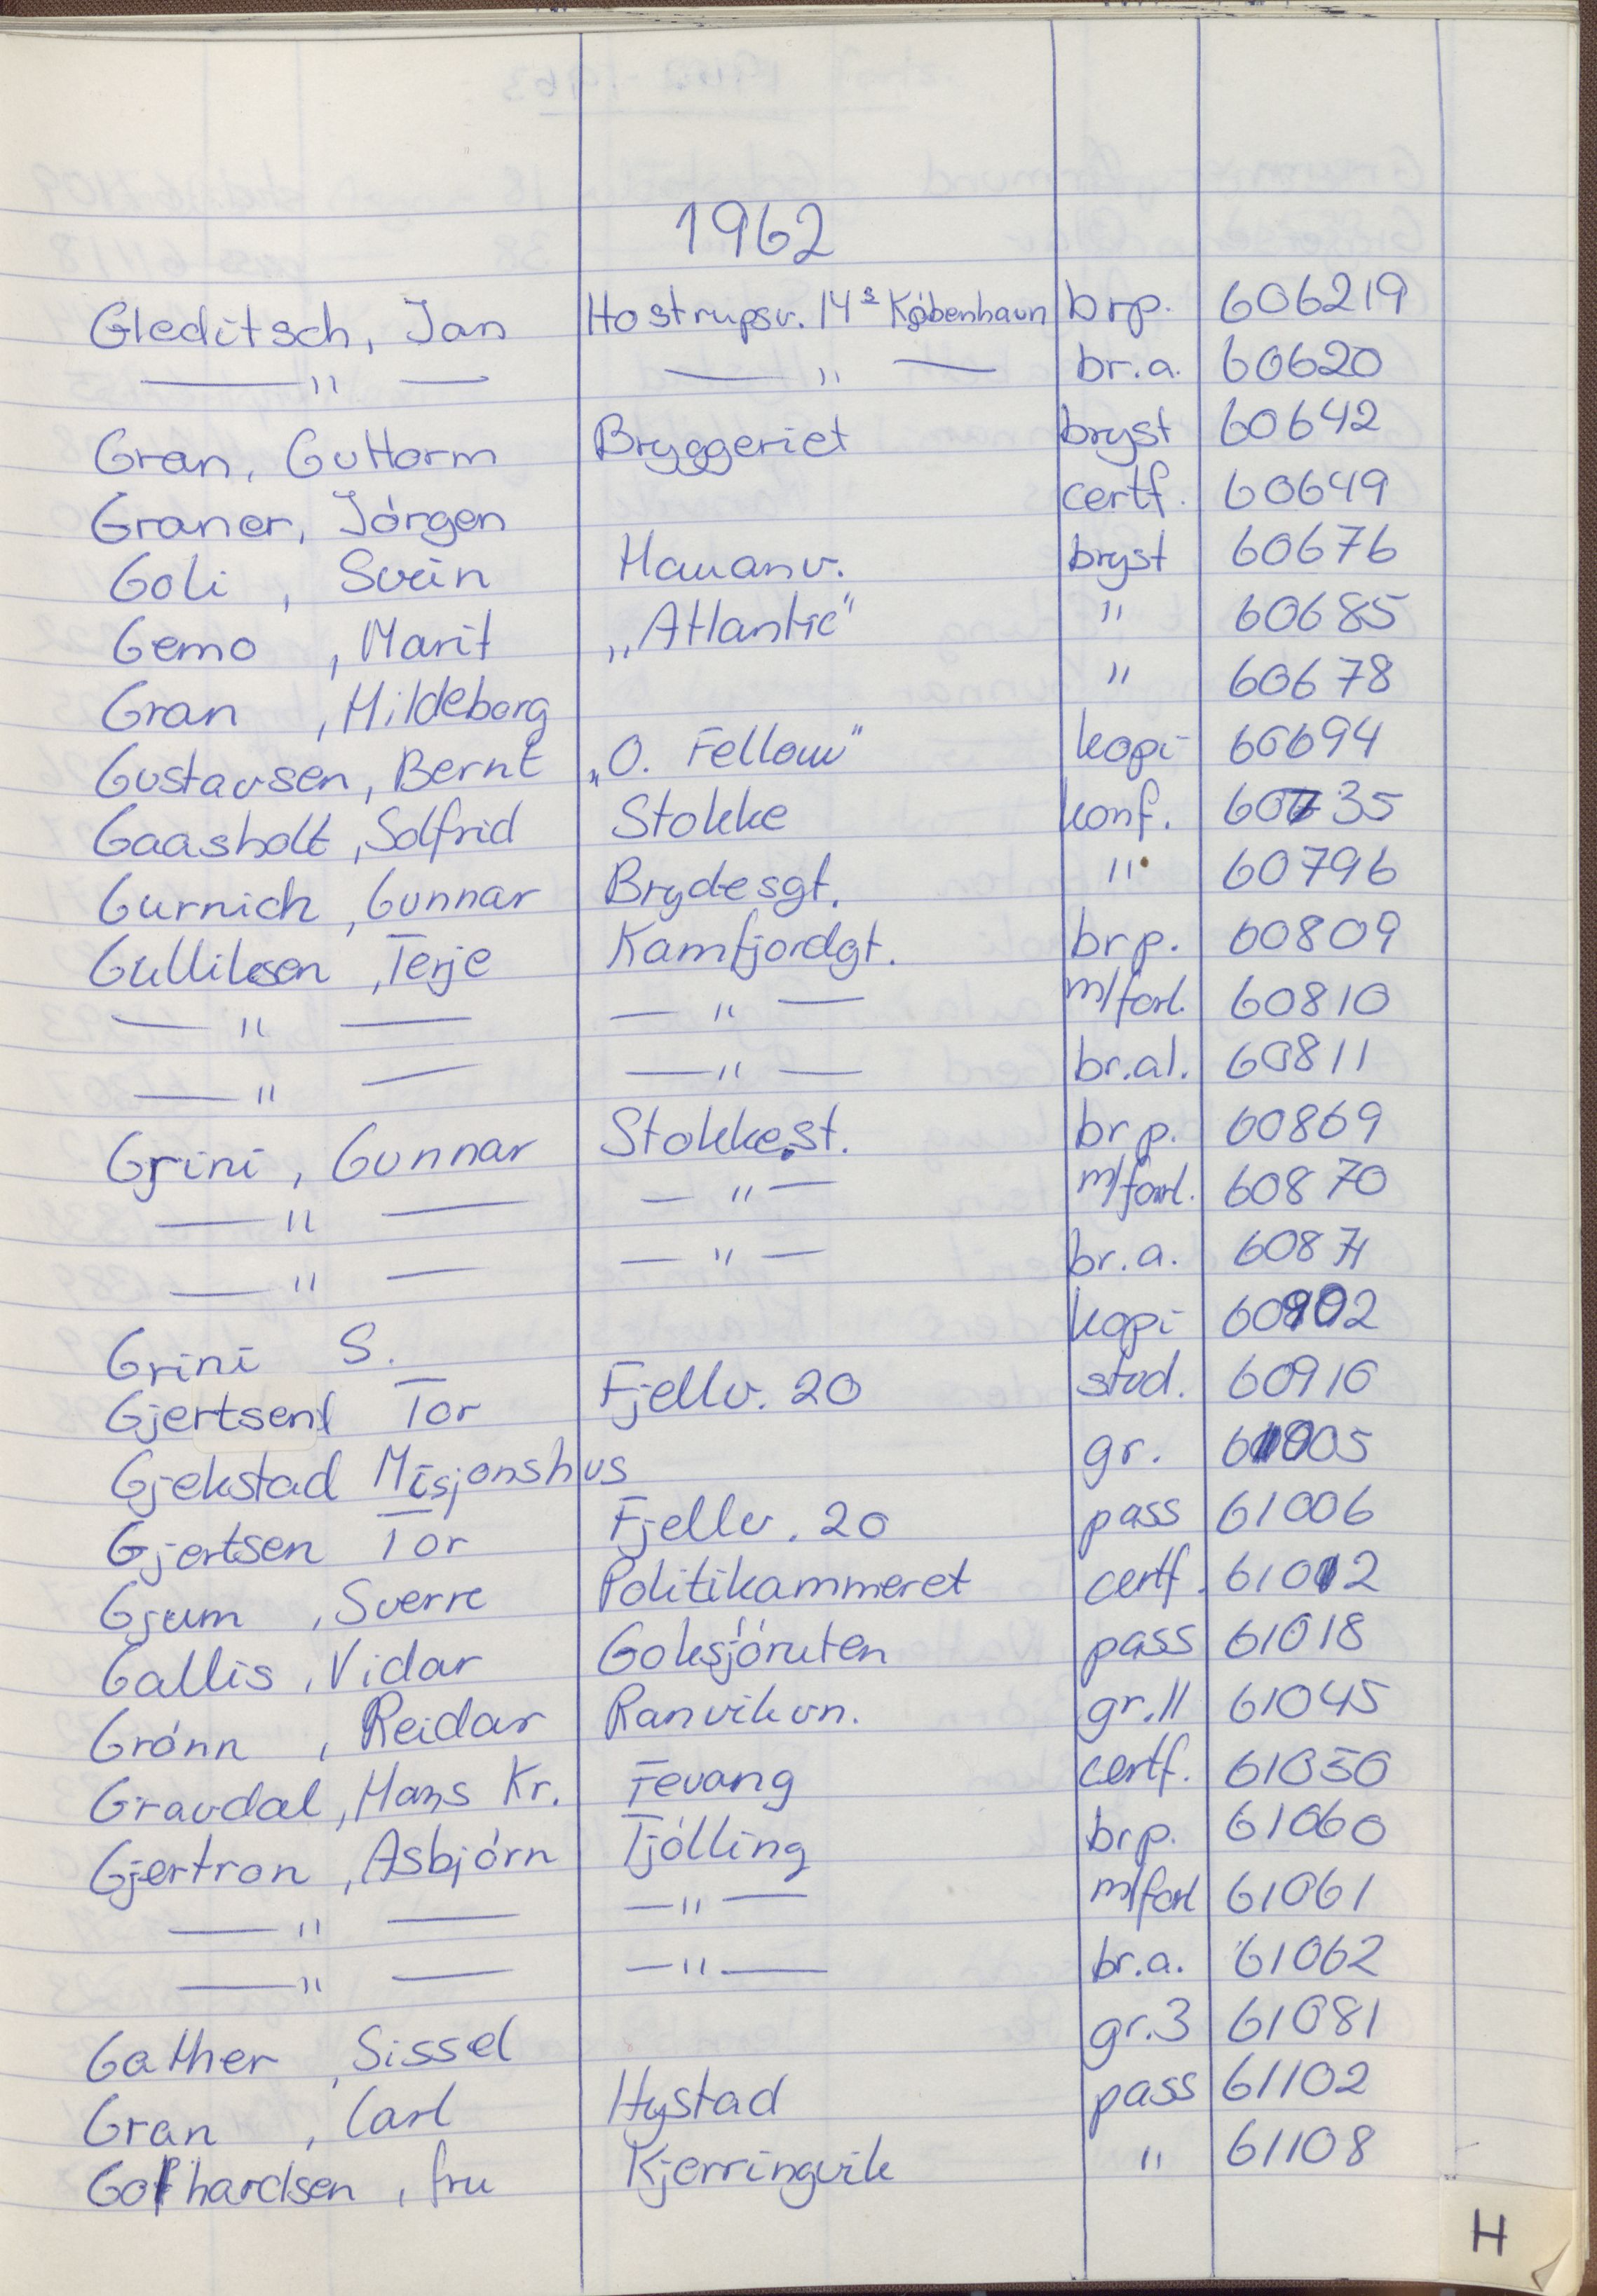 1962
Gleditsch, Jan Hostrupsv. 14s København brp. 606219
— " — — " — br.a. 60620
Gran, Guttorm Bryggeriet bryst 60642
Graner, Jórgen certf. 60649
Goli, Svein Hauanv. bryst 60676
Gemo, Marit „Atlantic" " 60685
Gran, Hildeborg " 60678
Gustavsen, Bernt „O. Fellow" kopi 60694
Gaasholt, Solfrid Stokke konf. 60735
Gurnich, Gunnar Brydesgt. " 60796
Gulliksen, Terje Kamfjordgt. brp. 60809
— " — — " — m/forl. 60810
— " — — " — br.al. 60811
Grini, Gunnar Stokke.st. brp. 60869
— " — — " — m/forl. 60870
— " — — " — br.a. 60871
Grini S. kopi 60902
Gjertsen Tor Fjellv. 20 stud. 60916
Gjekstad Misjonshus gr. 61005
Gjertsen Tor Fjellv. 20 pass 61006
Gjum, Sverre Politikammeret certf. 61012
Gallis, Vidar Goksjóruten pass 61018
Grónn, Reidar Ranvikvn. gr.11 61045
Gravdal, Hans Kr. Fevang certf. 61050
Gjertron, Asbjórn Tjólling brp. 61060
— " — — " — m/forl 61061
— " — — " — br.a. 61062
Gather, Sissel gr.3 61081
Gran, Carl Hystad pass 61102
Gothardsen, fru Kjerringvik " 61108
H